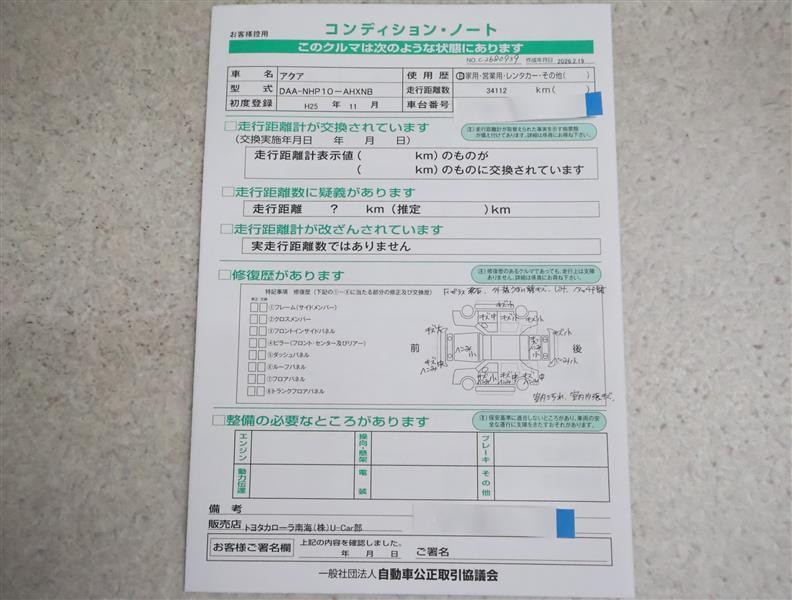 お客様控用
コンディション・ノート
このクルマは次のような状態にあります
NO.C-2680939 作成年月日 2026.2.19
車名 アクア 使用歴 自家用・営業用・レンタカー・その他( )
型式 DAA-NHP10-AHXNB 走行距離数 34112 km( )
初度登録 H25 年 11 月 車台番号
□走行距離計が交換されています
(交換実施年月日 年 月 日)
注)走行距離計が取替えられた事実を示す帳票類
が備え付けてあります。詳細は係員にお尋ね下さい。
走行距離計表示値( km)のものが
( km)のものに交換されています
□走行距離数に疑義があります
走行距離 ? km(推定 )km
□走行距離計が改ざんされています
実走行距離数ではありません
□修復歴があります
注)修復歴のあるクルマであっても、走行上は支障
ありません。詳細は係員にお尋ね下さい。
特記事項 修復歴(下記の①~⑧に当たる部分の修正及び交換歴)
修正 交換
①フレーム(サイドメンバー)
②クロスメンバー
③フロントインサイドパネル
④ピラー(フロント・センター及びリアー)
⑤ダッシュパネル
⑥ルーフパネル
⑦フロアパネル
⑧トランクフロアパネル
前
後
□整備の必要なところがあります
注)保安基準に適合しないところがあり、車両の安
全な運行に支障をきたすおそれがあります。
エンジン 操向・懸架 ブレーキ
動力伝達 電装 その他
備考
販売店 トヨタカローラ南海(株)U-Car部
お客様ご署名欄 上記の内容を確認しました。
年 月 日 ご署名
一般社団法人 自動車公正取引協議会